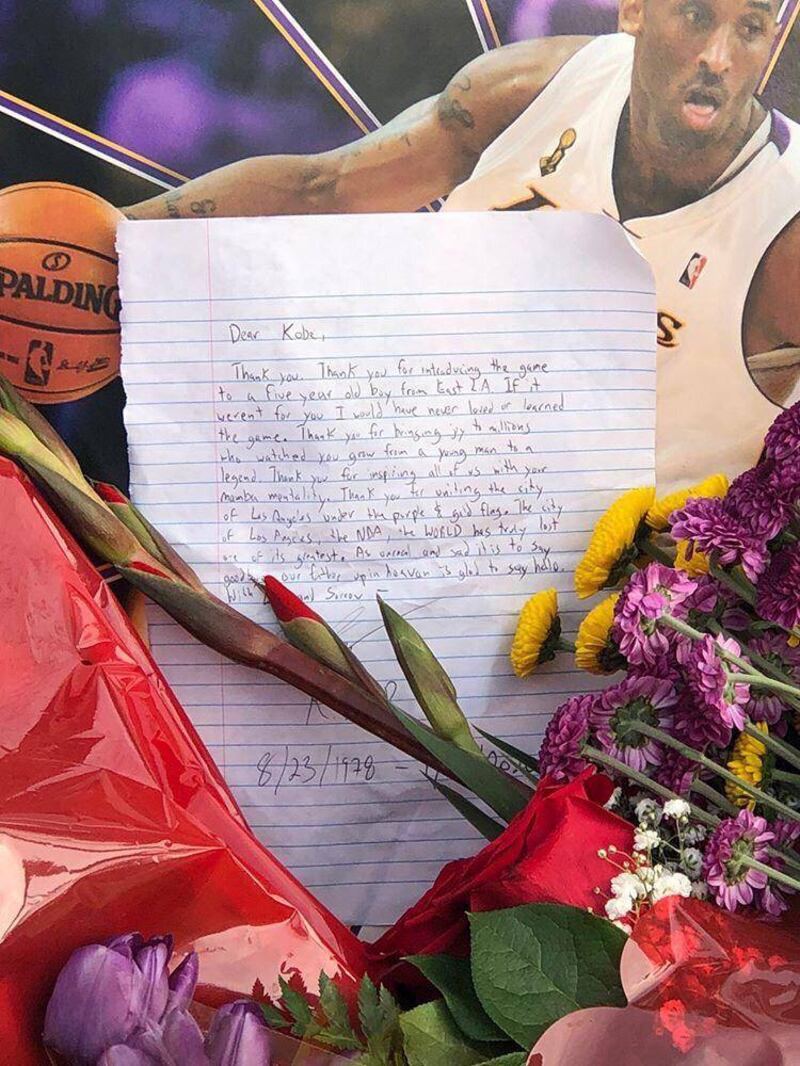 SPALDING
S
Dear Kobe,
Thank you. Thank you for introducing the game
to a five year old boy from East LA If it
werent for you I would have never loved or learned
the game. Thank you for bringing joy to millions
who watched you grow from a young man to a
legend. Thank you for inspiring all of us with your
mamba mentality. Thank you for uniting the city
of Los Angeles under the purple & gold flag. The city
of Los Angeles, the NBA, the WORLD has truly lost
one of its greatest. As unreal and sad it is to say
our father up in heaven is glad to say hello.
With and Sorrow
8/23/1978 -